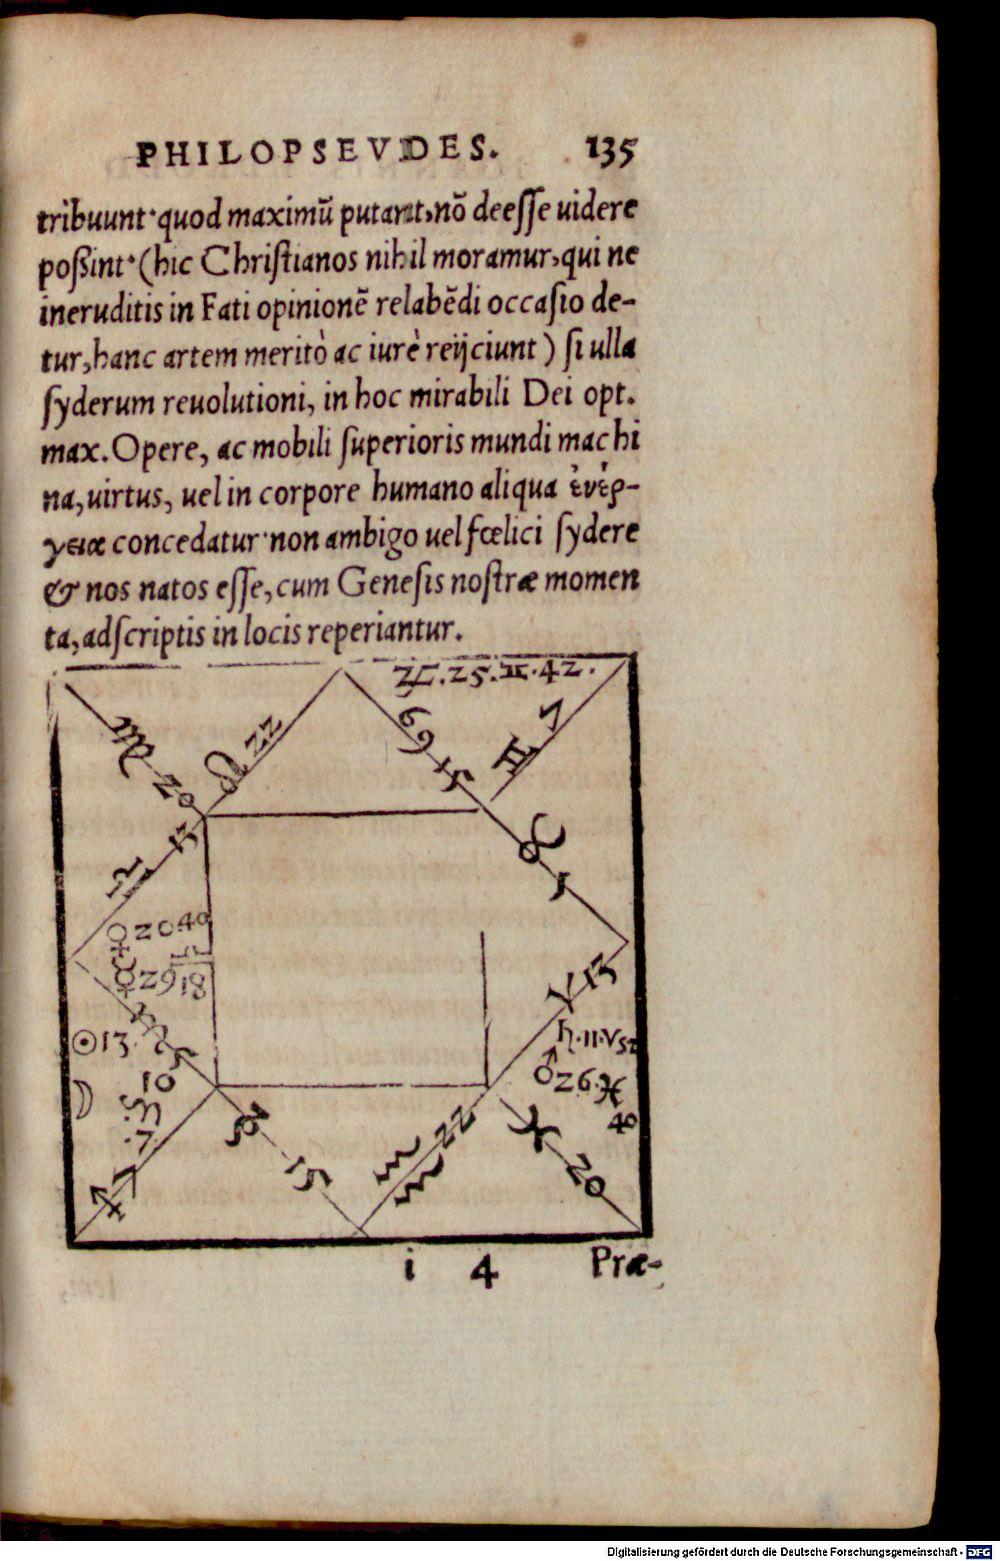 PHILOPSEVDES. 135
tribuunt·quod maximũ putant,nõ deeſſe uidere
poßint·(hic Chriſtianos nihil moramur,qui ne
ineruditis in Fati opinionẽ relabẽdi occaſio de-
tur,hanc artem meritò ac iurè reijciunt) ſi ulla
ſyderum reuolutioni, in hoc mirabili Dei opt.
max. Opere, ac mobili ſuperioris mundi machi
na,uirtus, uel in corpore humano aliqua ἐνέρ-
γεια concedatur·non ambigo uel fœlici ſydere
& nos natos eſſe,cum Geneſis noſtræ momen
ta,adſcriptis in locis reperiantur.
♃.25.♊.42.
♍ 20
♌ 22
♋ 15
♊ 7
♎ 5
♉ 5
♀ 20 40
♄
☿ 29 18
♈ 13
♄.11.♈ 52
☉ 13.
♏ 5
♂ 26.♓
40
☽ 10
♏
♐
♑ 15
♒ 22
♓ 20
i 4 Præ-
Digitalisierung gefördert durch die Deutsche Forschungsgemeinschaft - DFG